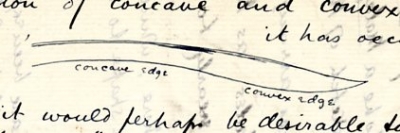 ion of concave and convex
it has occ
concave edge
convex edge
it would perhaps be desirable to